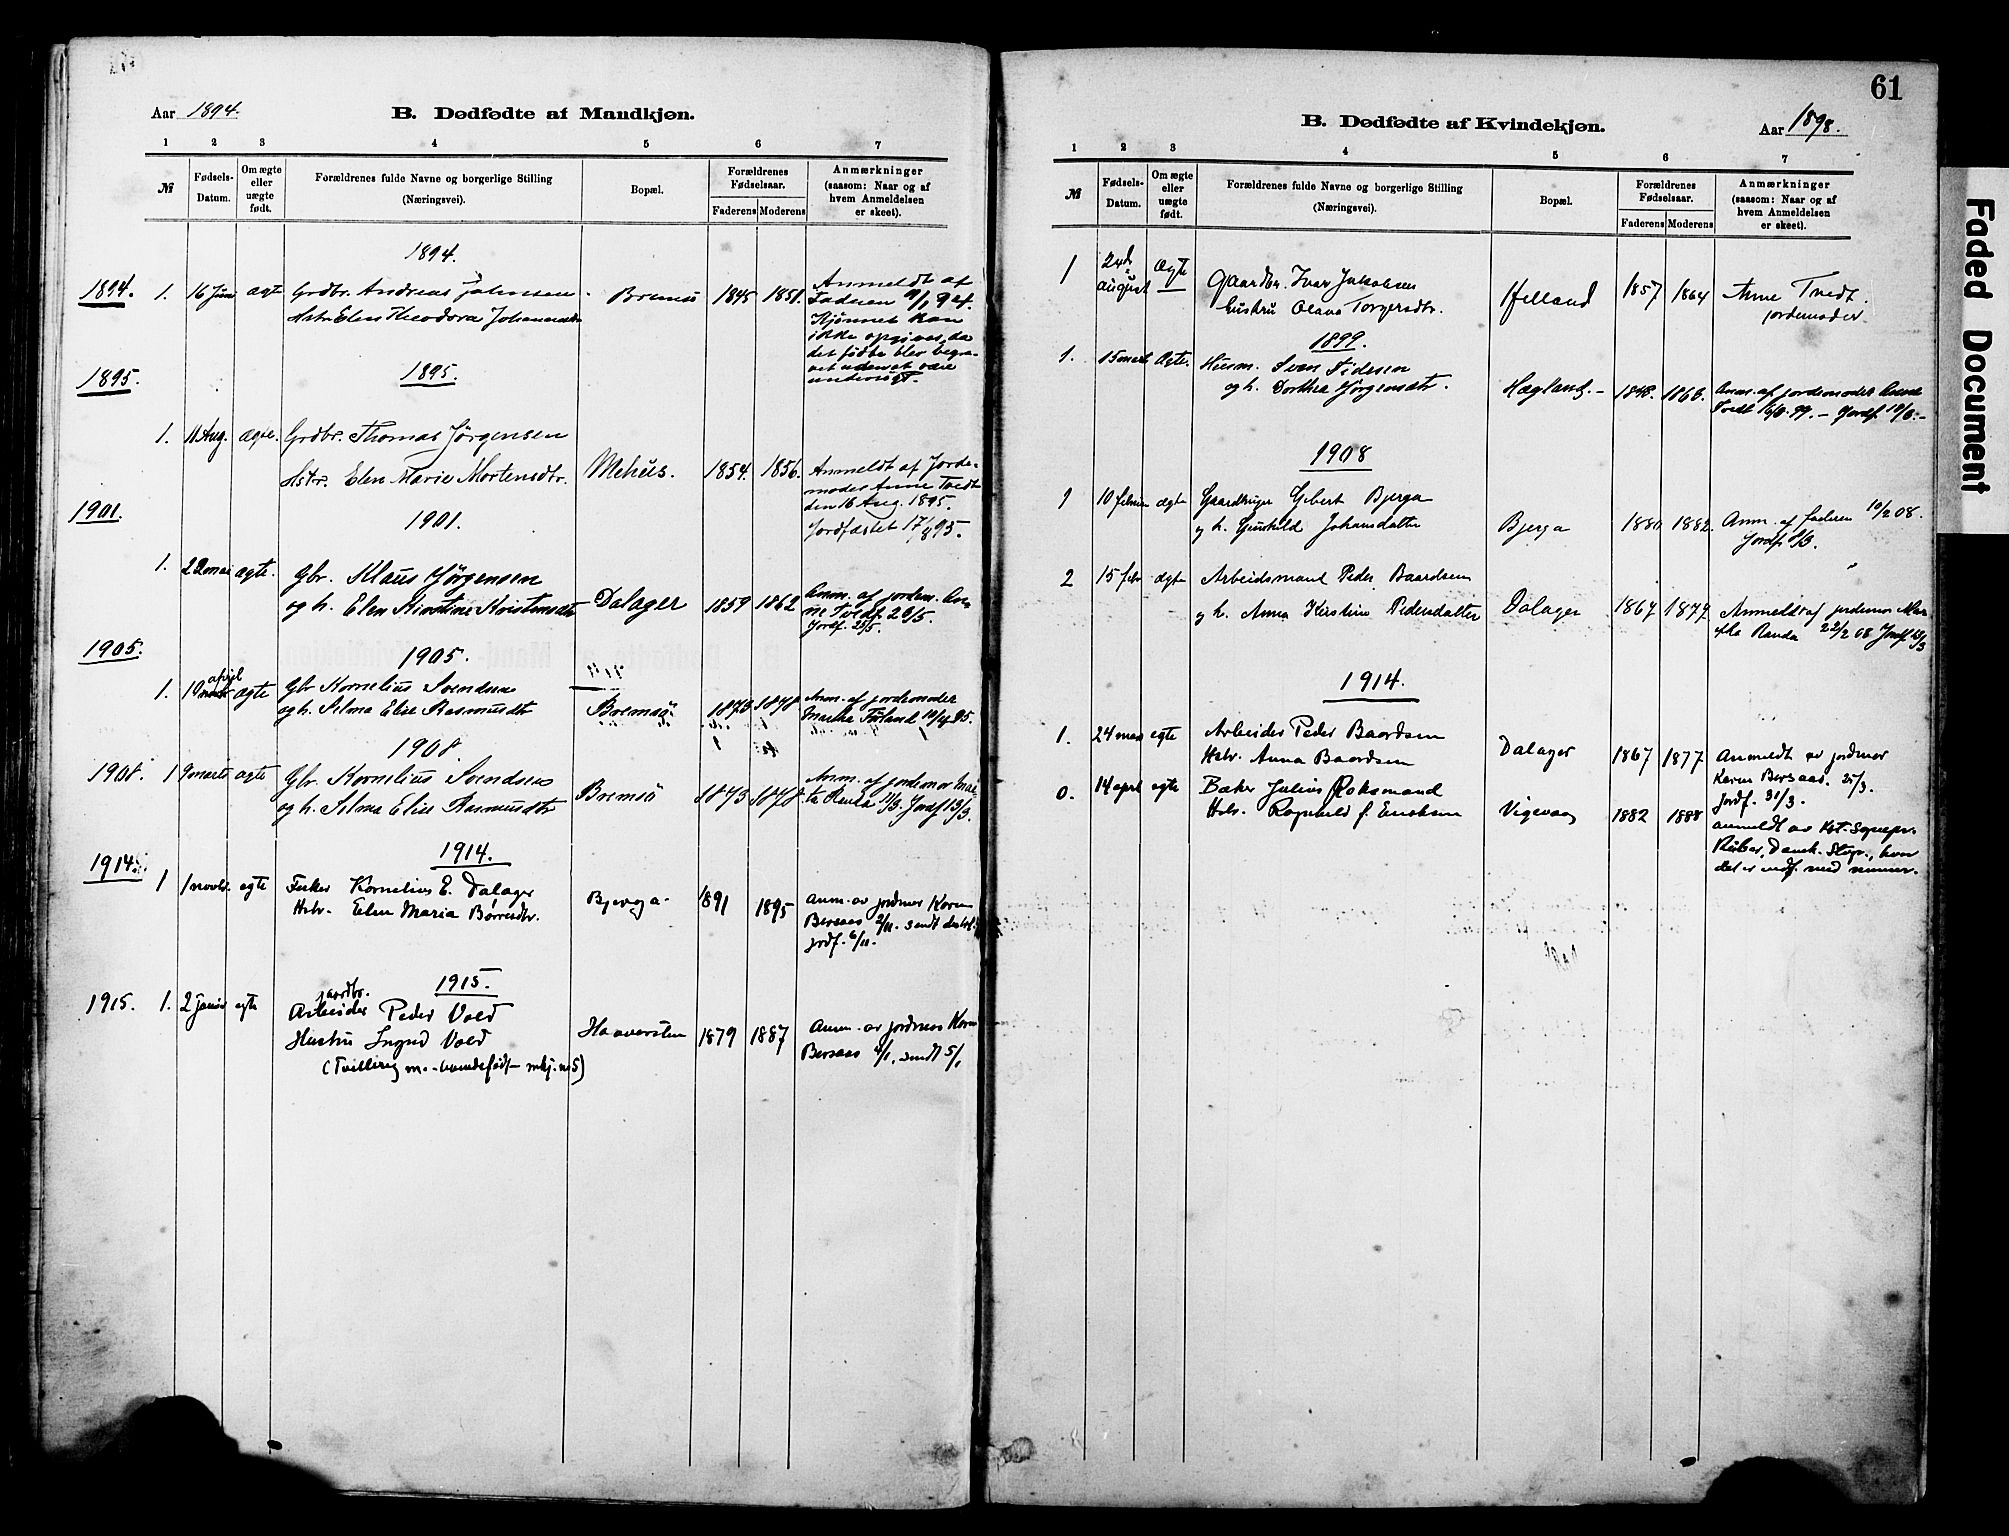 61
Aar 1894.
B. Dødfødte af Mandkjøn.
1 2 3 4 5 6 7
№
Fødsels-Datum.
Om ægte eller uægte født.
Forældrenes fulde Navne og borgerlige Stilling (Næringsvei).
Bopæl.
Forældrenes Fødselsaar.
Faderens Moderens
Anmærkninger (saasom: Naar og af hvem Anmeldelsen er skeet).
1894.
1894. 1. 16 Juni ægte Grdbr. Andreas Johnsen
Hstr. Elen Theodora
1845 1851.
Anmeldt af
Faderen
Kjønnet kan
ikke opgives, da
det fødte blev begra-
vet uden at være
undersøgt.
1895. 1895.
1. 11 Aug. ægte. Grdbr. Thomas Jørgensen
Hstr. Elen Marie Mortensdtr. Mehus. 1854. 1856.
Anmeldt af Jorde-
moder Anne Tvedt
den 16 Aug. 1895.
Jordfæstet 17/8 95.
1901. 1901.
1. 22 mai ægte. Gbr. Klaus Jørgensen
og h. Elen Kirstine Dalager 1859 1862
Anm. af jordem. An-
ne Tvedt
Jordf.
1905. 1905.
1. 10 april ægte Gbr Kornelius Svendsen
og h. Selma Elise Rasmusdtr Bremsø 1873 1878
Anm. af jordemoder
1908.
1908. 1 9 marts ægte Gbr. Kornelius Svendsen
og h. Selma Elise Rasmusdtr Bremsø 1873 1878.
Anm. af jordemor Mar-
ta Randa 11/3. Jordf 13/3.
1914. 1914.
1 1 novbr. egte Fisker Kornelius E. Dalager
Hstr. Elen Maria Børresdtr. Bjerga. 1891 1895
Anm. av jordmor Karen
Bersaas 2/11. sendt
jordf. 6/11.
1915.
1915. 1. 2 januar egte
Arbeider Peder Vold
Hustru Ingrid Vold 1879 1887
Anm. av jordmor Karen
Bersaas 4/1, sendt 5/1
(Tvilling m. levendefødt mkj. no 5)
B. Dødfødte af Kvindekjøn.
Aar 1898.
1 2 3 4 5 6 7
№
Fødsels-Datum.
Om ægte eller uægte født.
Forældrenes fulde Navne og borgerlige Stilling (Næringsvei).
Bopæl.
Forældrenes Fødselsaar.
Faderens Moderens
Anmærkninger (saasom: Naar og af hvem Anmeldelsen er skeet).
1 august ægte Gaardbr. Ivar Jakobsen
hustru Olava Torgersdtr. Helland 1857 1864 Anne Tvedt.
jordemoder
1899.
1. 15 marts ægte. Husm. Sven Tidesen
og h. Dorthea Jørgensdtr. Hagland.- 1848. 1863.
Anm. af jordemoder Anne
Tvedt
1908
1 10 februar ægte Gaardbruger Gibert Bjerga
og h. Gunhild Johansdatter Bjerga 1880 1882. Anm. af faderen 10/2 08.
2 15 febr ægte Arbeidsmand Peder Baardsen
og h. Anna Kirstine Pedersdatter Dalager 1867 1877. Anmeldt af jordemor Mar-
tha Randa 22/2 08
1914.
1. 24 mars egte Arbeider Peder Baardsen
Hstr. Anna Baardsen Dalager 1867 1877
Anmeldt av jordmor
Karen Bersaas. 25/3.
jordf. 31/3.
0. 14 april egte Baker Julius Roksmand
Hstr. Ragnhild f. Eriksen 1882 1888
anmeldt av Kst. Sognepr.
Faded Document